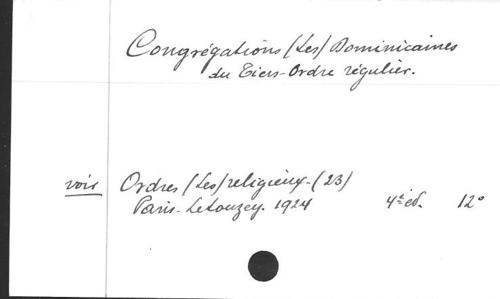 Congrégations (Les) Dominicaines
du Tiers-Ordre régulier.
voir Ordres (Les) religieux-(23)
Paris-Letouzey. 1924 4e éd. 12°